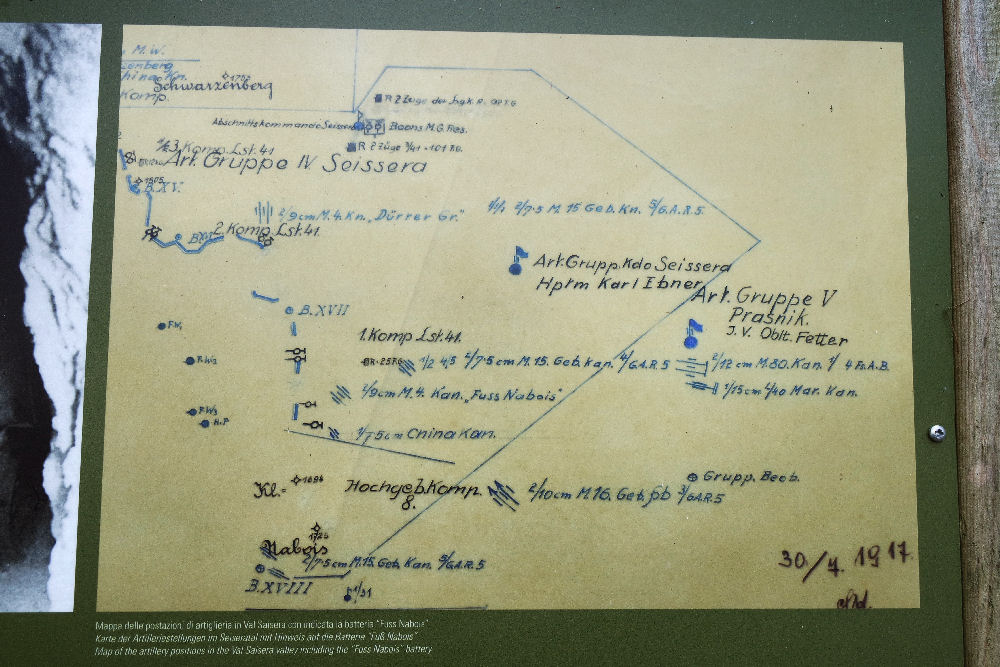 M. W.
Kn.
Schwarzenberg
Komp.
R 2 Züge der
Abschnittskommando Seissera
Baons M.G. Res.
R 2 Züge 3/41
3. Komp. Lst. 41
Art. Gruppe IV Seissera
B.XV.
2/9cm M.4. Kn. „Dürrer Gr."
2/7·5 M. 15 Geb. Kn. 5/G.A.R.5.
2. Komp. Lst. 41.
Art. Grupp. Kdo Seissera
Hptm Karl Ebner
Art. Gruppe V
Prasnik.
J. V. Oblt. Fetter
B. XVII
F.W.
1. Komp Lst. 41.
F.W2
1/2 4/5 2/7·5 cm M. 15. Geb. kan. 4/G.A.R 5
2/12 cm M. 80. Kan. 1/ 4 Fs.A.B.
1/15cm L/40 Mar. Kan.
2/9cm M. 4. Kan. „Fuss Nabois"
F.W3
H.P
1/7 5cm China Kan.
Kl.=
Hochgeb. Komp.
8.
Grupp. Beob.
2/10cm M. 16. Geb. 3/GAR5
Nabois
2/7·5 cm M. 15. Geb. Kan. 5/G.A.R. 5
B. XVIII
30/4. 1917.
Mappa delle postazioni di artiglieria in Val Saisera con indicata la batteria "Fuss Nabois"
Karte der Artilleriestellungen im Seiseratal mit Hinweis auf die Batterie "Fuß Nabois"
Map of the artillery positions in the Val Saisera valley including the "Fuss Nabois" battery